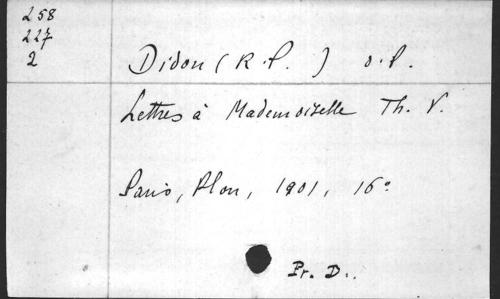 258
227
2
Didon (R.P. ) O.P.
Lettres à Mademoiselle Th. V.
Paris, Plon, 1901, 16°
Pr. D.